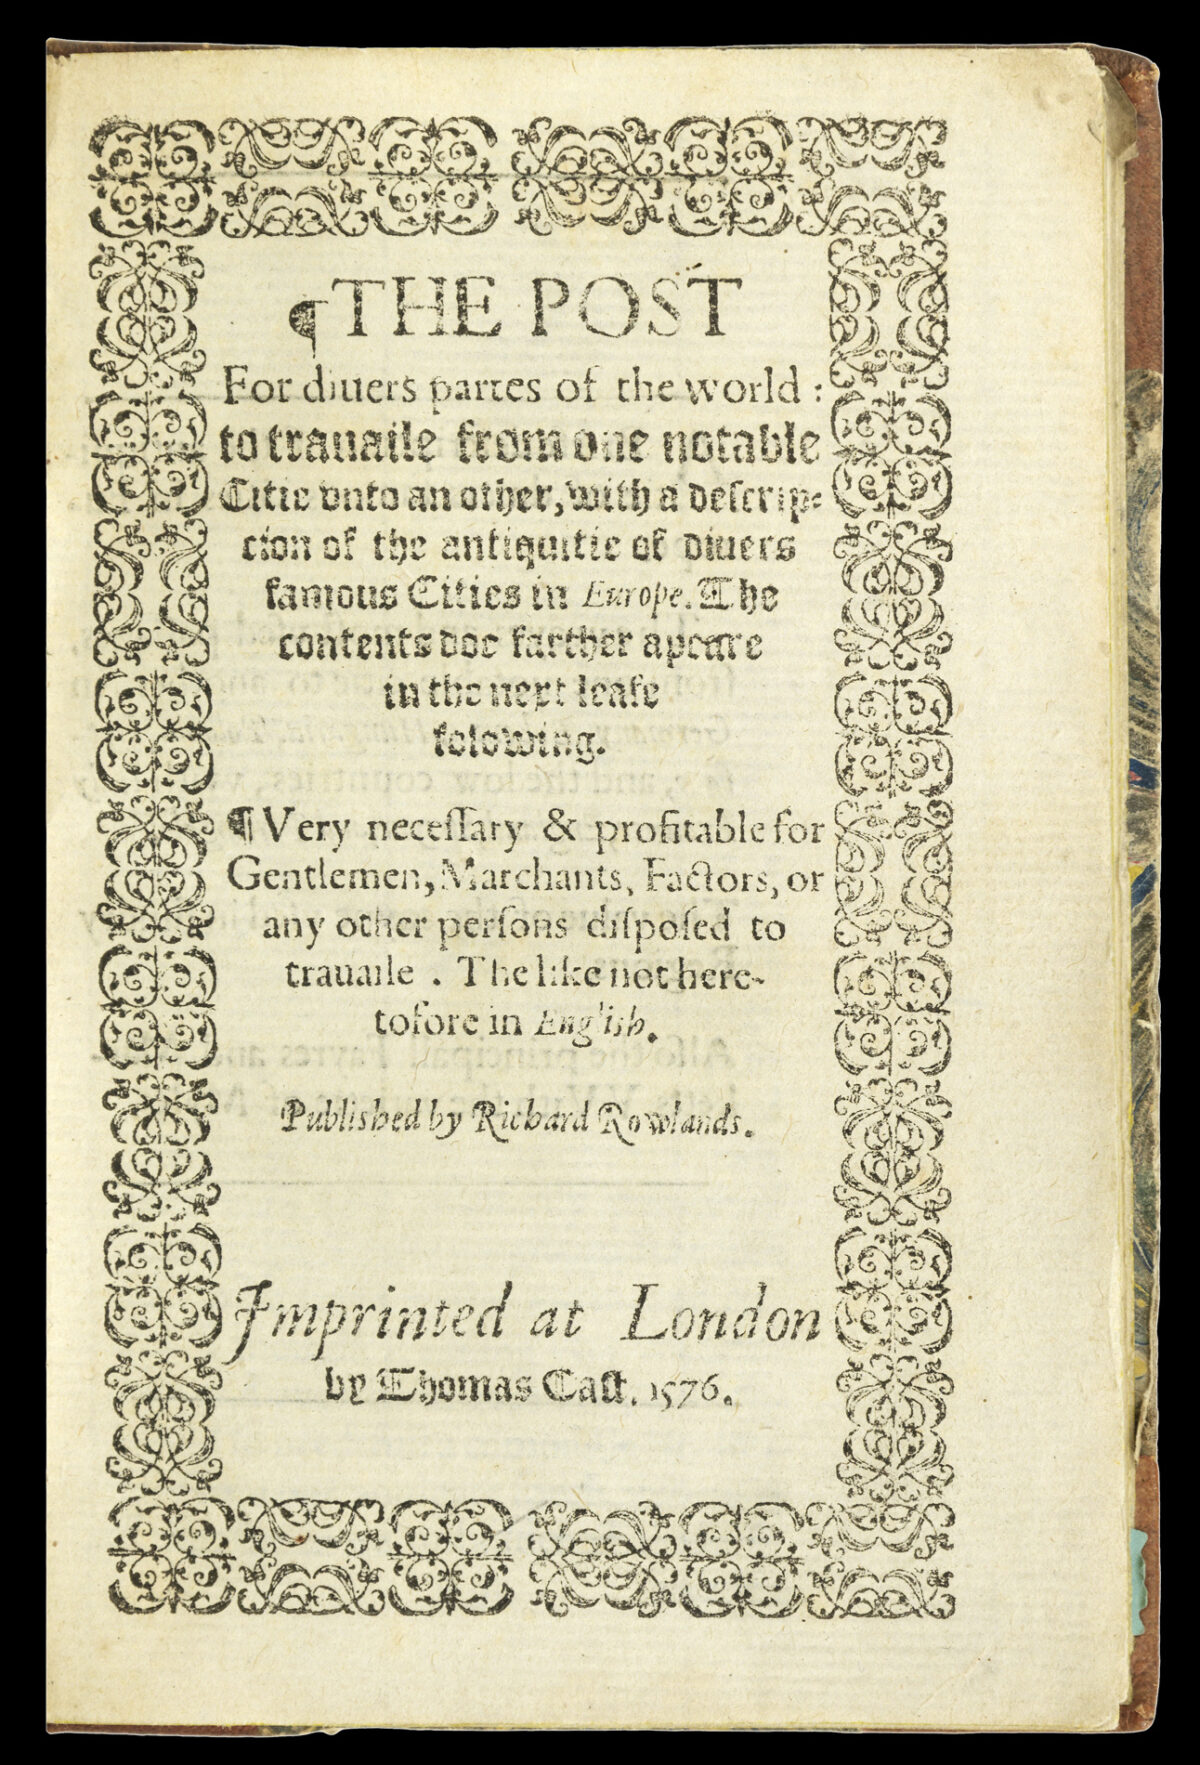 ¶THE POST
For diuers partes of the world :
to trauaile from one notable
Citie vnto an other, with a deſcrip⸗
cion of the antiquitie of diuers
famous Cities in Europe. The
contents doe farther apeare
in the next leafe
folowing.
¶ Very neceſſary & profitable for
Gentlemen, Marchants, Factors, or
any other perſons diſpoſed to
trauaile . The like not here-
tofore in Engliſh.
Published by Richard Rowlands.
Imprinted at London
by Thomas Eaſt. 1576.